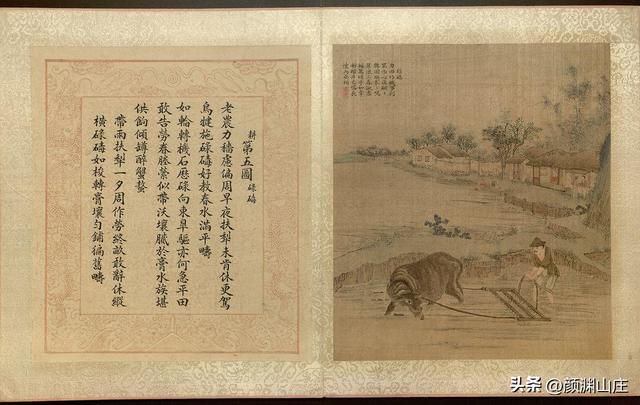 耕第五圖 碌碡
老農力穡慮偏周早夜扶犁未肯休更駕
烏犍施碌碡好教春水滿平疇
如輪轉機石歷碌向東皋驅亦何急平田
敢告勞春塍縈似帶沃壤膩於膏水族堪
供餉傾罇醉蟹螯
帶雨扶犁一夕周作勞終畝敢辭休縱
橫碌碡如梭轉膏壤勻鋪徧舊疇
头条 @颜渊山庄